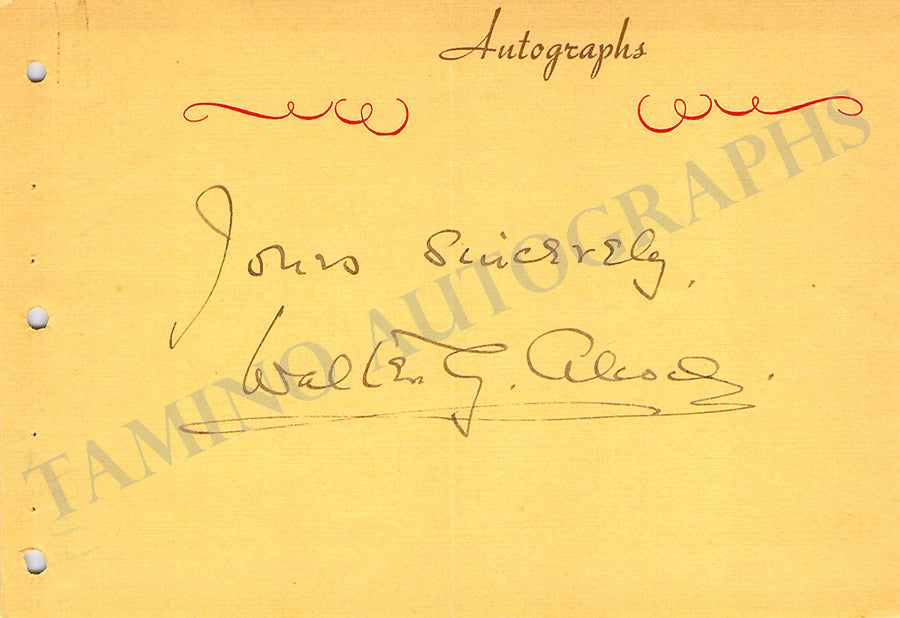 Autographs
Yours sincerely,
Walter G. Alcock.
TAMINO AUTOGRAPHS